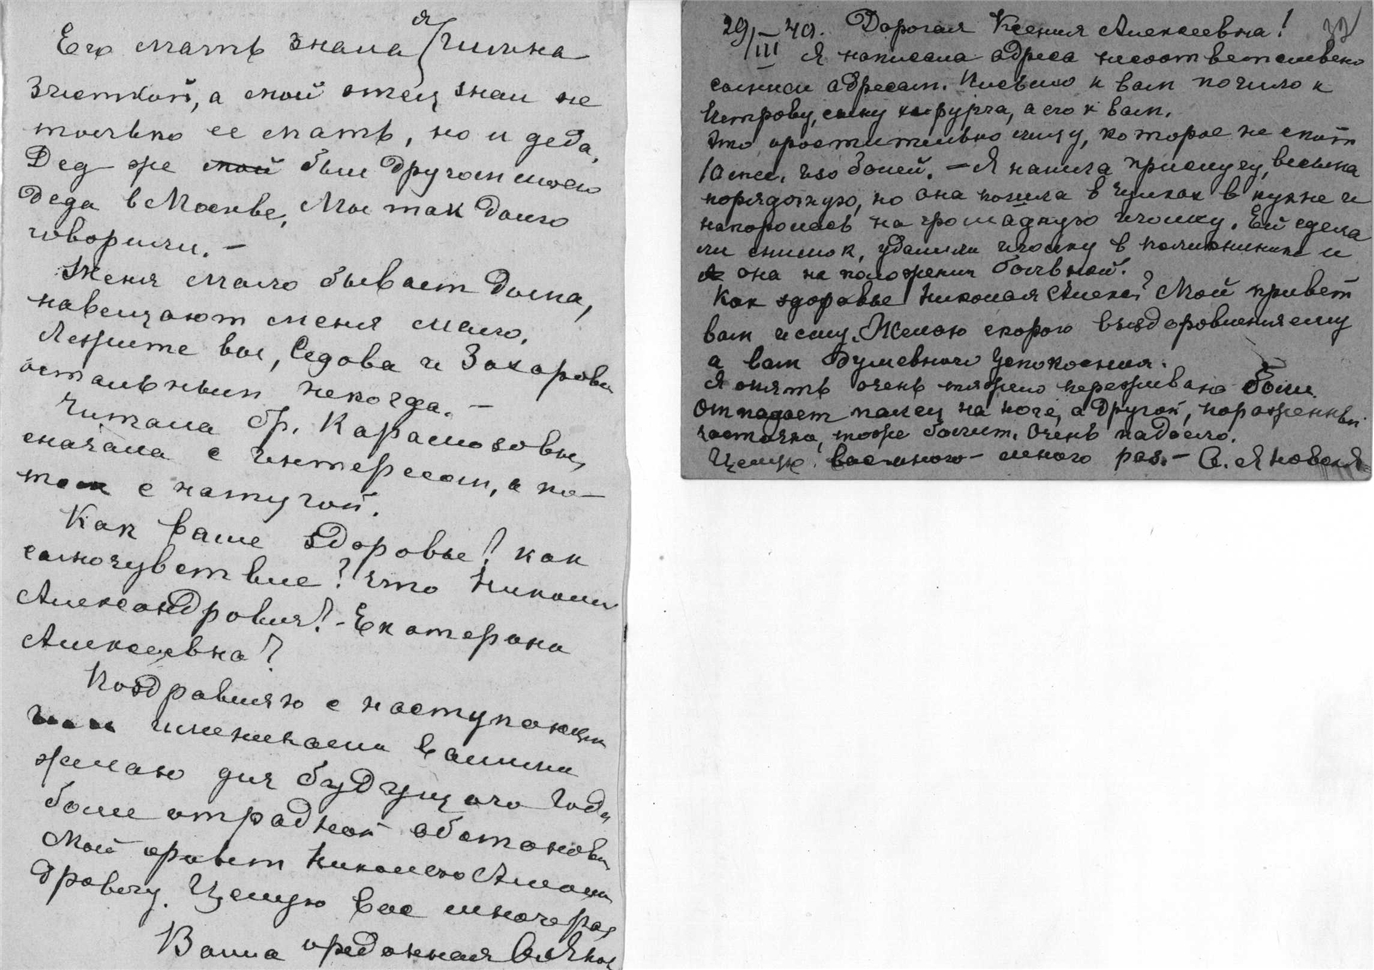 Его мать знала я
Зметкой, а мой отец знал не
только ее мать, но и деда.
Дед же мой был другом моего
деда в Москве. Мы так долго
говорили. –
Женя мало бывает дома,
навещают меня мало.
Лечите вы, Седова и Захарова
остальным некогда. –
Читала Бр. Карамозовы,
сначала с интересом, а по-
том с натугой.
Как ваше здоровье? как
самочувствие? Что Николай
Александрович? – Екатерина
Алексеевна?
Поздравляю с наступающи
ми именинами вашими
желаю для будущего года
более отрадной обстановки
Мой привет Николаю Алексан
дровичу. Целую вас много раз
Ваша преданная
29/III 40. Дорогая Ксения Алексеевна! 32
Я написала адреса несоответственно
самим адресам. Письмо к вам пошло к
Петрову, сыну хирурга, а его к вам.
Это простительно лицу, которое не спит
из болей. – Я нашла прислугу, весьма
порядочную, но она пошла в чулках в кухне и
напоролась на громадную иголку. Ей сдела
ли снимок, удалили иголку в поликлинике и
она на положении больной.
Как здоровье Николая Алекс? Мой привет
вам и ему. Желаю скорого выздоровления ему
а вам душевного успокоения.
Я опять очень тяжело переживаю боли.
Отпадает палец на ноге, а другой, пораженный
частично, тоже болит. Очень надоело.
Целую вас много – много раз. – Яновская